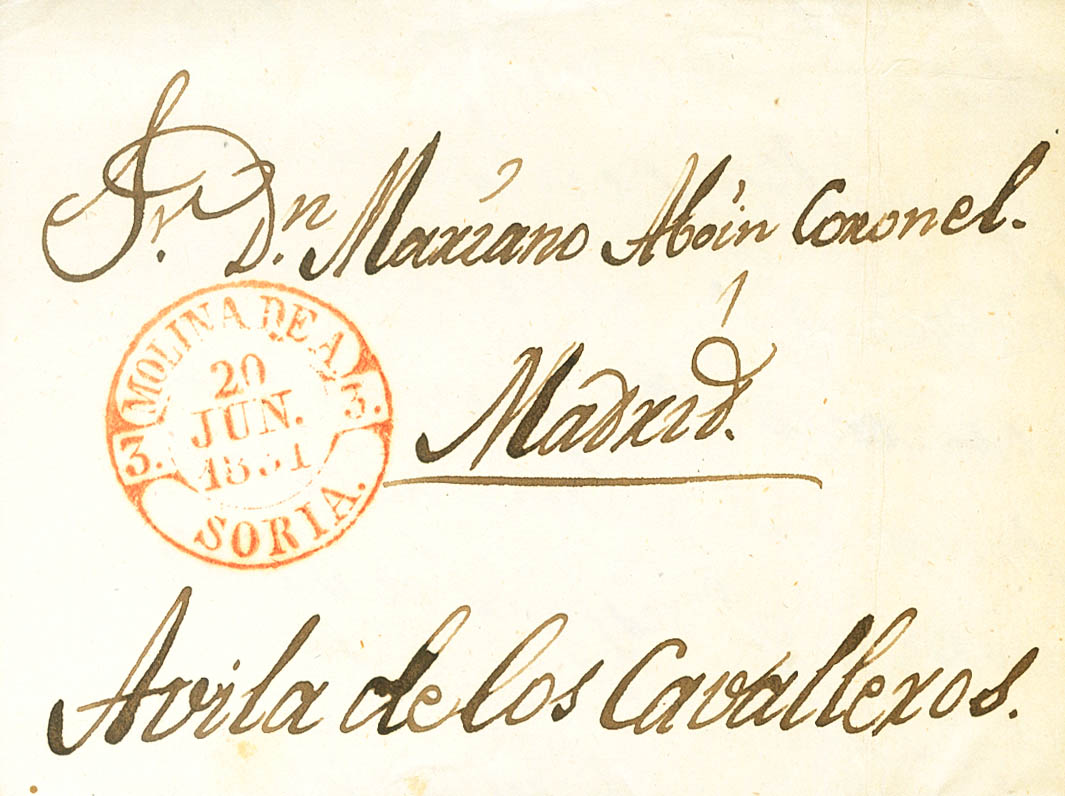 Sr. Dn. Mariano Abóin Coronel.
MOLINA DE A.
3. 3.
20
JUN.
1851
SORIA.
Madrid.
Avila de los Cavalleros.